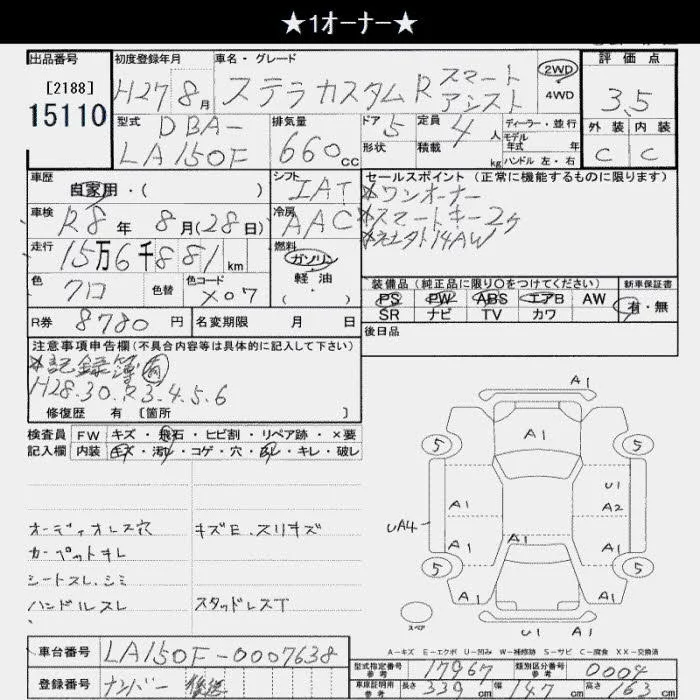 ★1オーナー★
出品番号
[2188]
15110
初度登録年月
H27年8月
車名・グレード
ステラカスタムR スマートアシスト
2WD
4WD
評価点
3.5
外装 内装
C C
型式
DBA-
LA150F
排気量
660cc
ドア 5
形状
定員 4人
積載 kg
ディーラー・並行
モデル年式 年
ハンドル 左・右
車歴
自家用・( )
シフト
IAT
セールスポイント (正常に機能するものに限ります)
※ワンオーナー
※スマートキー2ヶ
車検
R8年8月(28日)
冷房
AAC
走行
15万6千881km
燃料
ガソリン
軽油
( )
色
クロ
色替
色コード
X07
装備品 (純正品に限り○をつけてください)
PS PW ABS エアB AW
SR ナビ TV カワ
新車保証書
有・無
R券 8780円
名変期限 月 日
後日品
注意事項申告欄(不具合内容等は具体的に記入して下さい)
※記録簿 有
H28.30.R3.4.5.6
修復歴 有 [箇所 ]
検査員記入欄
FW キズ・飛石・ヒビ割・リペア跡・×要
内装 キズ・汚れ・コゲ・穴・スレ・キレ・破レ
オーディオレス穴
カーペットキレ
シートスレ.シミ
ハンドルスレ
キズE.スリキズ
スタッドレスT
A1
5
A1
5
U1
A2
A1
UA4
A1
A1
A1
5
5
A1
A1
スペア
U1
A1
A-キズ E-エクボ U-凹み W-補修跡 S-サビ C-腐食 XX-交換済
車台番号
LA150F-0007638
登録番号
ナンバー 後送
型式指定番号 参考
17967
類別区分番号 参考
0004
車庫証明用 参考
長さ 339cm
幅 147cm
高さ 163cm